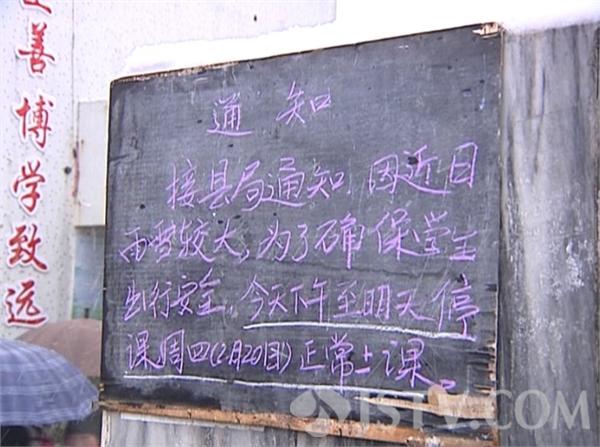 善博学致远
通知
接县局通知,因近日
雨雪较大,为了确保学生
出行安全,今天下午至明天停
课周四(2月20日)正常上课。
JSTV.COM